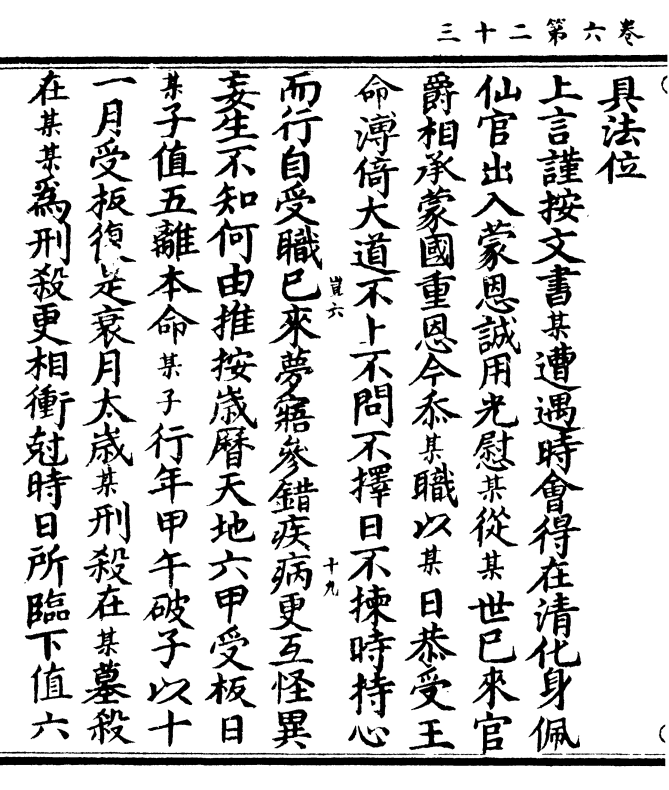 卷六第二十三
具法位
上言謹按文書某遭遇時會得在清化身佩
仙官出入蒙恩誠用光慰某從某世已來官
爵相承蒙國重恩今忝某職以某日恭受王
命溥倚大道不上不問不擇日不揀時持心
豈六
十九
而行自受職已來夢寤參錯疾病更互怪異
妄生不知何由推按歲曆天地六甲受板日
某子值五離本命某子行年甲午破子以十
一月受板復是衰月太歲某刑殺在某墓殺
在某某為刑殺更相衝尅時日所臨下值六